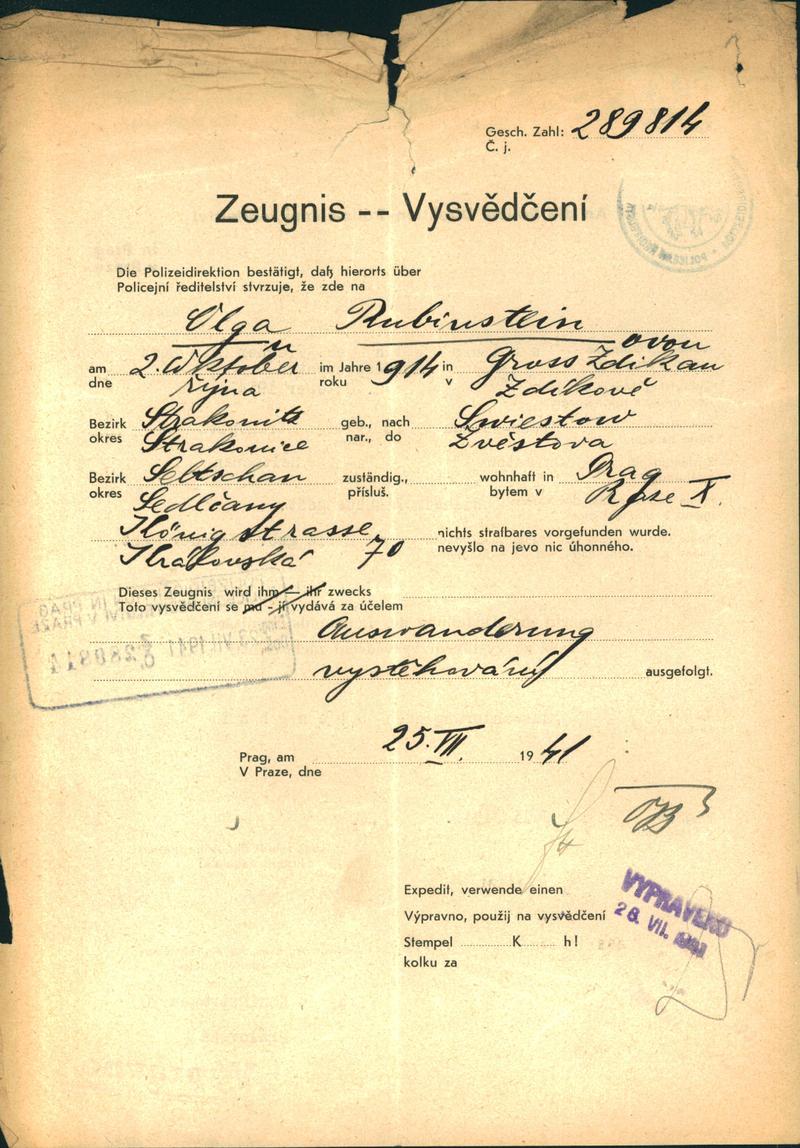 Gesch. Zahl: 289814
Č. j.
Zeugnis -- Vysvědčení
Die Polizeidirektion bestätigt, daß hierorts über
Policejní ředitelství stvrzuje, že zde na
Olga Rubinstein
u ovou
am 2. Oktober im Jahre 1914 in Gross Zdikau
dne října roku v Zdíkově
Bezirk Strakonitz geb., nach Swiestow
okres Strakonice nar., do Zvěstova
Bezirk Seltschan zuständig., wohnhaft in Prag
okres Sedlčany přísluš. bytem v X.
Königstrasse nichts strafbares vorgefunden wurde.
Královská 70 nevyšlo na jevo nic úhonného.
Dieses Zeugnis wird ihm — ihr zwecks
Toto vysvědčení se mu - jí vydává za účelem
Auswanderung
vystěhování ausgefolgt.
Prag, am 25. VII. 1941
V Praze, dne
Expedit, verwende einen
Výpravno, použij na vysvědčení
Stempel K h!
kolku za
VYPRAVENO
26. VII. 1941